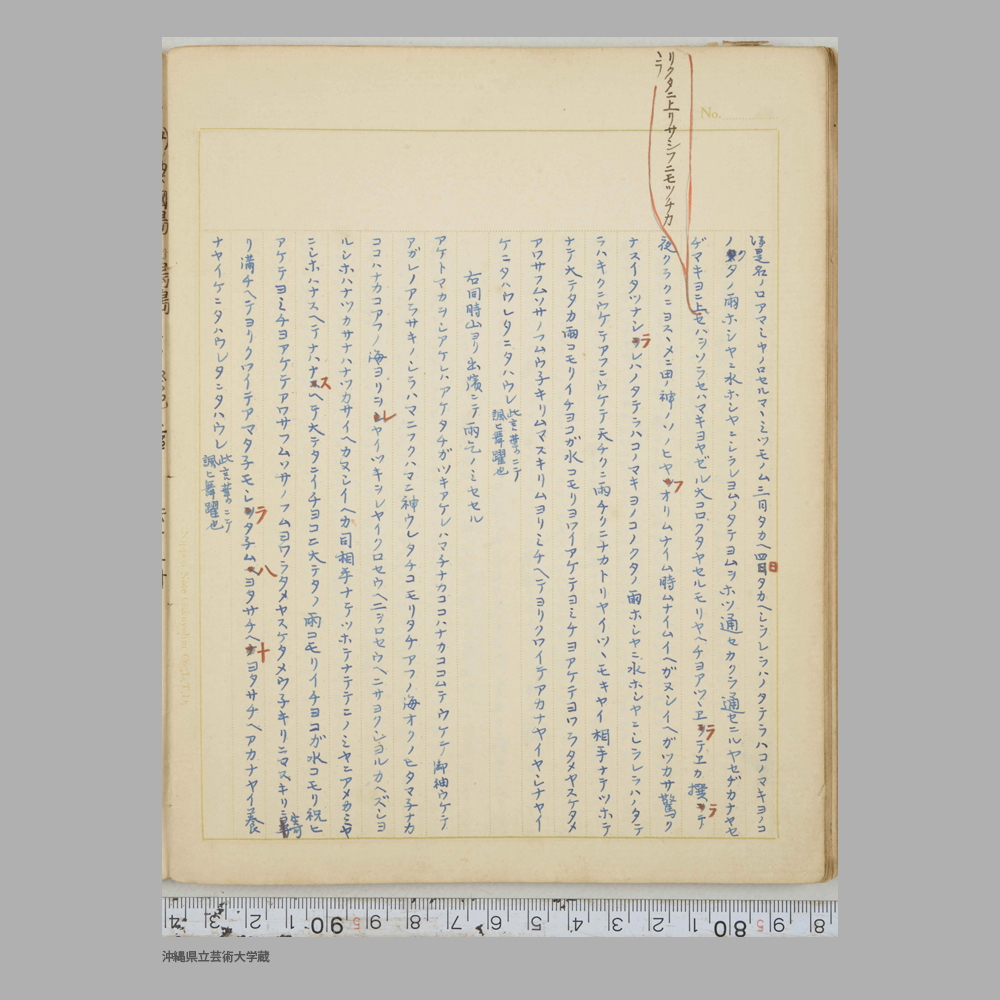 リクタニ上リサシフニモツチカ
ミラ
No.
是名ノロアマミヤノロセルマヽミツモノム三日タカヘ四日タカヘシラレラハノタテラハコノマキヨノコ
ノクタノ雨ホシヤニ水ホシヤニシラレヨムノタテヨムシホツ通セカクラ通セニルヤセヂカナヤセ
ヂマキヨニ上セハシソラセハマキヨヤゼル大コロクタヤセルモリヤヘチヨアツヽヱラテヱカ撰ラテ
夜クラクニヨスヽメニ田ノ神ノソノヒヤフオリムナイム時ムナイムイヘガヌシイヘガツカサ驚ク
ナスイタツナシラレハノタテラハコノマキヨノコノクタノ雨ホシヤニ水ホシヤニシラレラハノタテ
ラハキクニウケテアフニウケテ天チクニ雨チクニナカトリヤイツヽモキヤイ相手ナテツホテ
ナテ大テタカ雨コモリイチヨコガ水コモリヨワイアケテヨミチヨアケテヨワラタメヤスケタメ
アワサフムソサノフムウ子キリムマスキリムヨリミチヘテヨリクワイテアカナヤイヤシナヤイ
ケニタハウレタニタハウレ 此言葉ニテ
諷ヒ舞躍也
右同時山ヨリ出濱ニテ雨乞ノミセセル
アケトマカヲシアケレハアケタチガツキアケレハマ子ナカココハナカココムテウケテ御袖ウケテ
アガレノアラサキノシラハマニフクハマニ神ウレタチコモリタチアフノ海オクノヒタマ子ナカ
ココハナカコアフノ海ヨリヲレヤイツキヲレヤイクロセウヘニシロセウヘニサヨクシヨルカヘズシヨ
ルシホハナツカサナハナツカサイヘカヌシイヘカ司相手ナテツホテナテテニノミヤニアメカミヤ
ニシホハナスヘテナハナスヘテ大テタニイチヨコニ大テタノ雨コモリイチヨコガ水コモリ祝ヒ
アケテヨミチヨアケテアワサフムソサノフムヨワラタメヤスケタメウ子キリニマスキリニ寄
リ満チヘテヨリクワイテアマタ子モシラタ子ムハヨタサチヘナヨタサチヘアカナヤイ養
ナヤイケニタハウレタニタハウレ 此言葉ニテ
諷ヒ舞躍也
8 5 80 1 2 3 4 5 6 7 8 9 5 90 1 2 3 4
沖縄県立芸術大学蔵